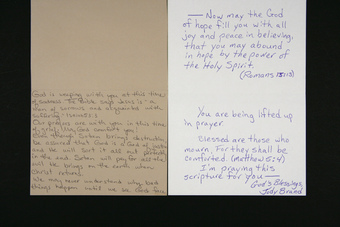 God is weeping with you at this time
of sadness. The Bible says Jesus is "a
man of sorrows and acquainted with
suffering"
Our prayers are with you in this time
of grief. May God comfort you!
Even though Satan brings destruction
be assured that God is a God of justice
and He will sort it all out
in the end. Satan will pay for all the
evil he brings to the earth when
Christ returns.
We may never understand why bad
things happen until we
— Now may the God
of hope fill you with all
joy and peace in believing,
that you may abound
in hope by the power of
the Holy Spirit.
(Romans 15:13)
You are being lifted up
in prayer.
Blessed are those who
mourn, For they shall be
comforted (Matthew 5:4)
I'm praying this
scripture for you —
God's Blessings,
Judy Brand